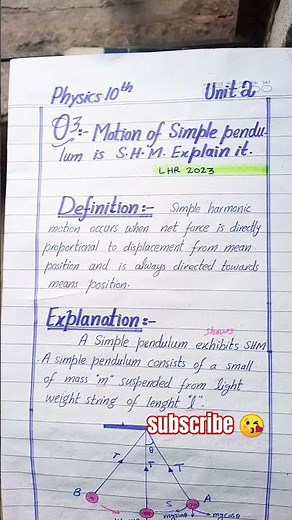 Physics 10th Unit 2
Q3:- Motion of Simple pendu-
lum is S.H.M. Explain it.
LHR 2023
Definition:- Simple harmonic
motion occurs when net force is directly
proportional to displacement from mean
position and is always directed towards
means position.
Explanation:-
shows
A Simple pendulum exhibits SHM
.A simple pendulum consists of a small
of mass "m" suspended from light
weight string of lenght "l".
subscribe 😘
θ
T T T
B S A
m m m
mgsinθ mgcosθ